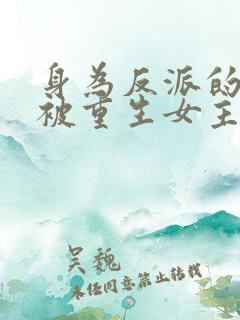 身為反派的
被重生女主
吴魏
未经同意禁止转载